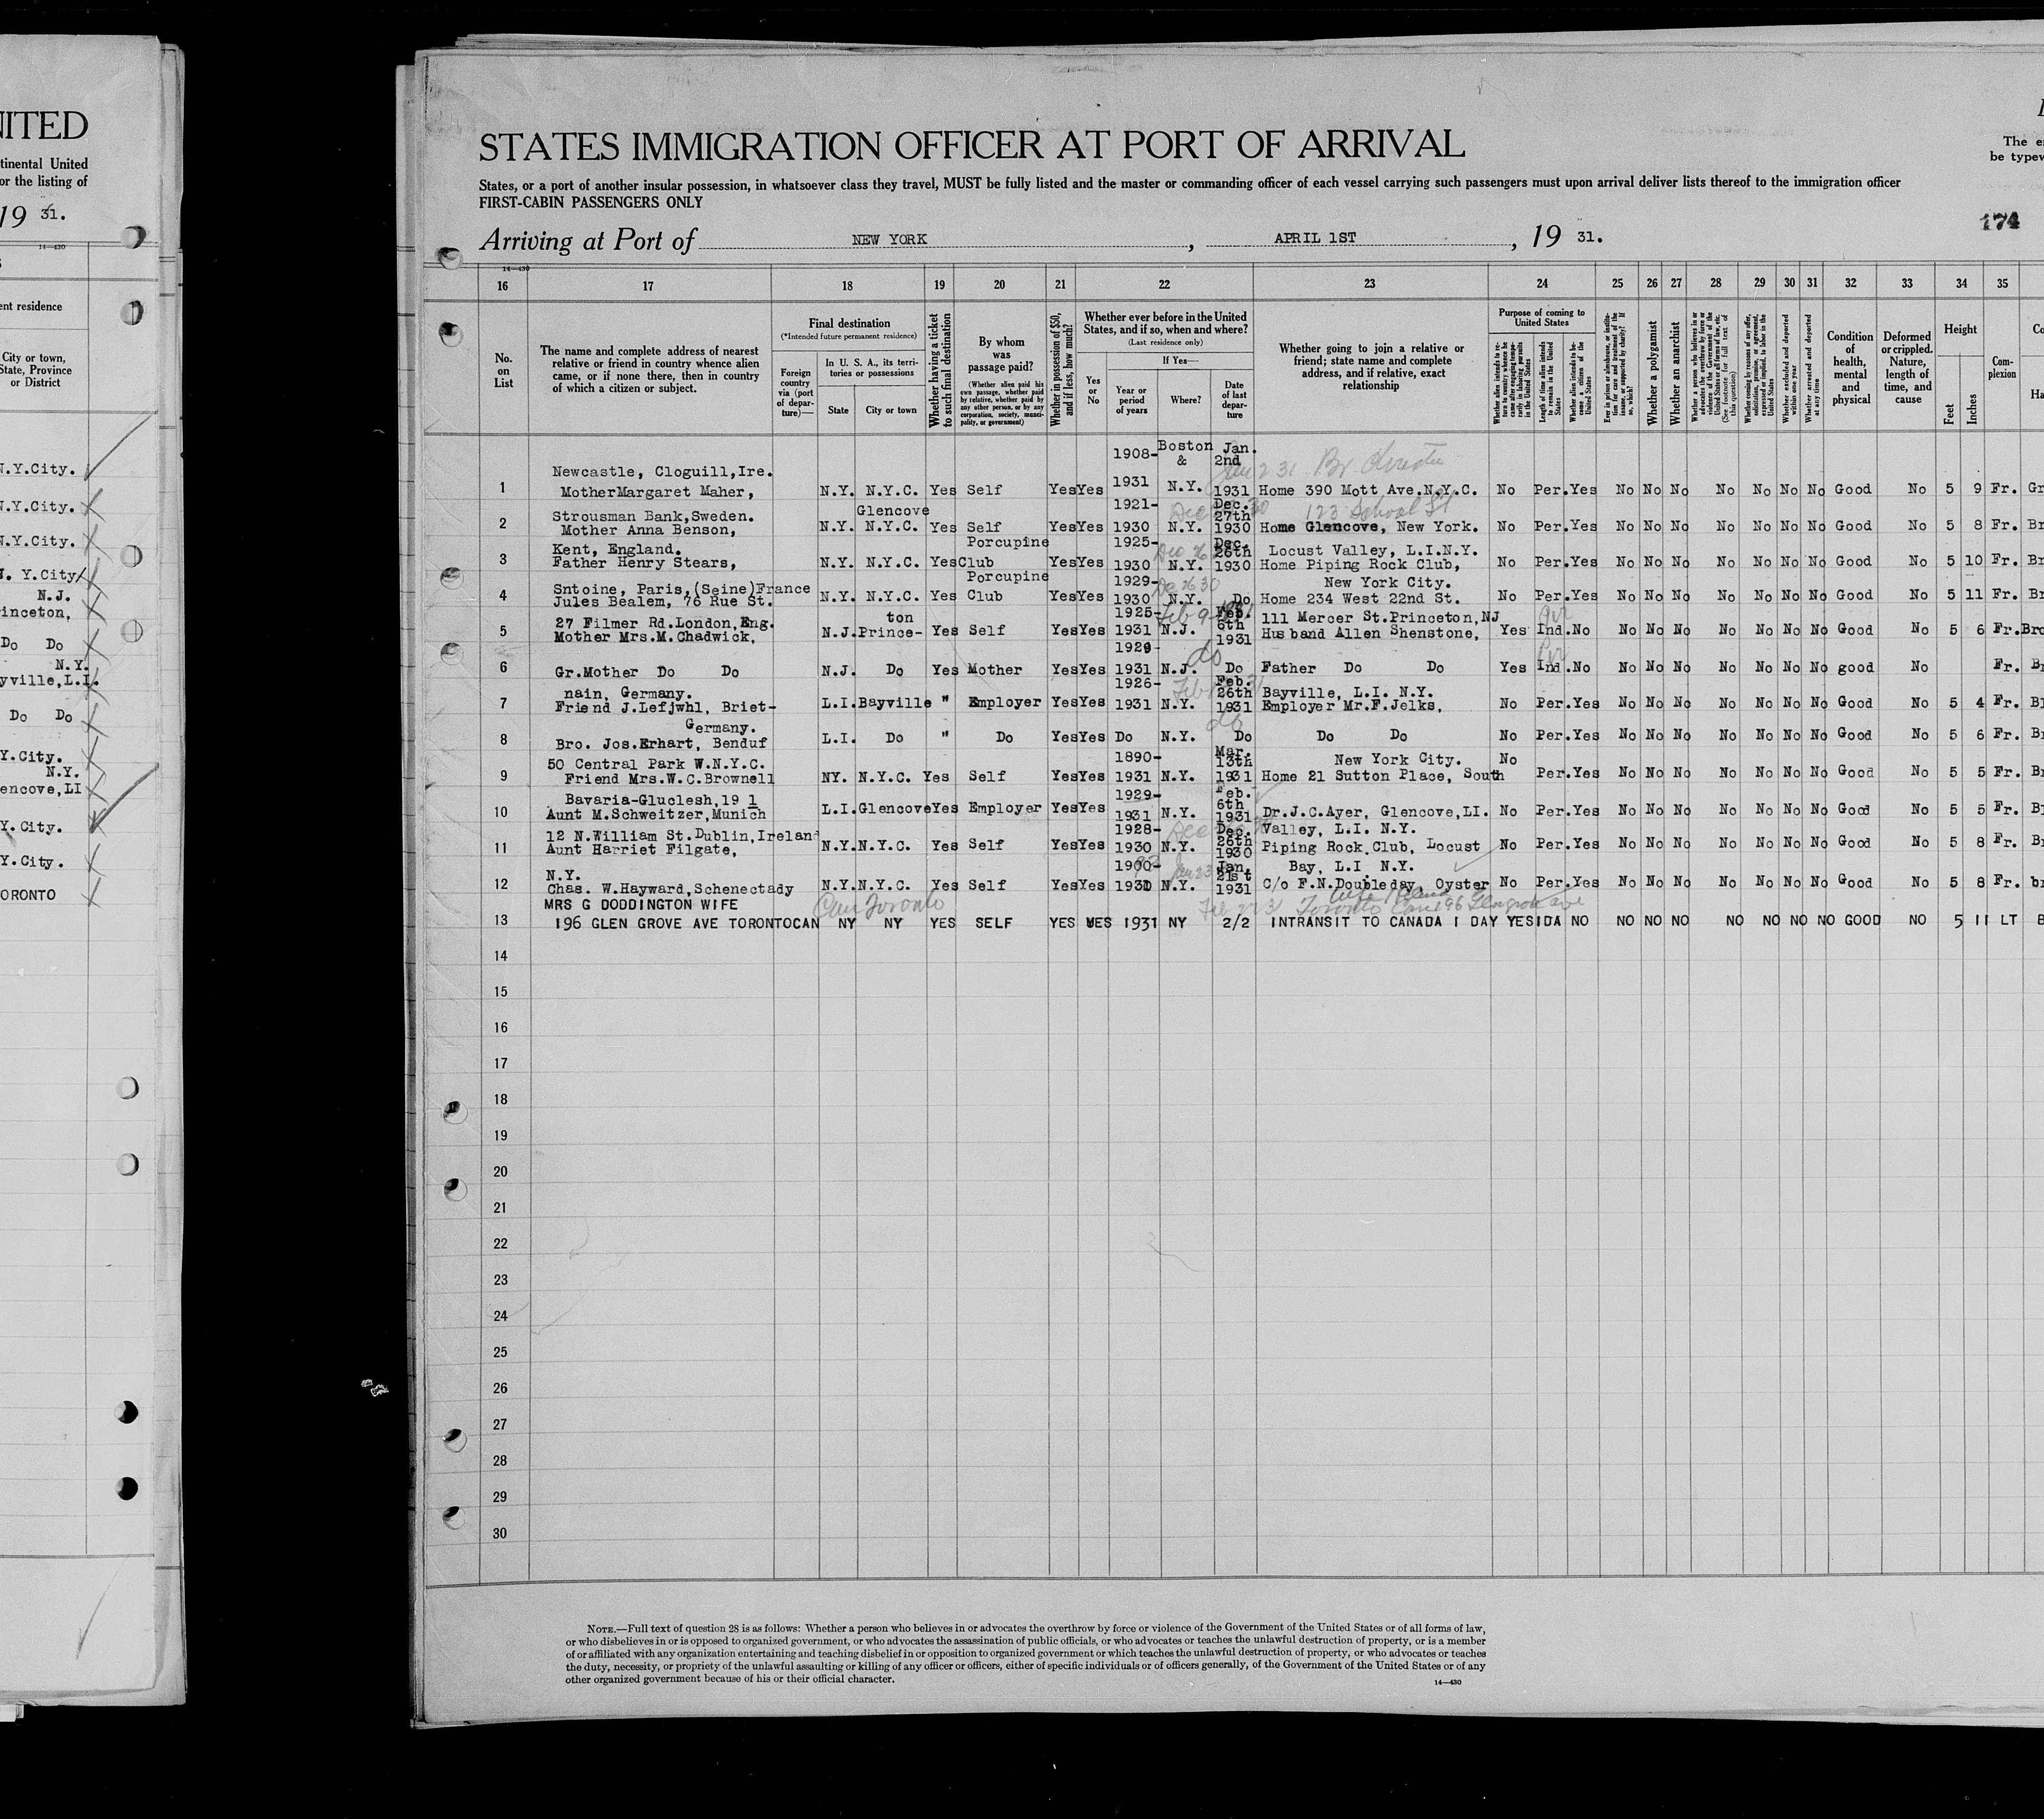 NITED
tinental United
or the listing of
19 31.
14—430
ent residence
City or town,
State, Province
or District
N.Y.City.
N.Y.City.
N.Y.City.
N. Y.City
N.J.
rinceton,
Do Do
N.Y.
yville,L.I.
Do Do
Y.City.
N.Y.
encove,LI
Y.City.
Y.City.
TORONTO
STATES IMMIGRATION OFFICER AT PORT OF ARRIVAL
The
be typew
States, or a port of another insular possession, in whatsoever class they travel, MUST be fully listed and the master or commanding officer of each vessel carrying such passengers must upon arrival deliver lists thereof to the immigration officer
FIRST-CABIN PASSENGERS ONLY
174
Arriving at Port of NEW YORK, APRIL 1ST, 19 31.
14—430
16 17 18 19 20 21 22 23 24 25 26 27 28 29 30 31 32 33 34 35
No. on List
The name and complete address of nearest relative or friend in country whence alien came, or if none there, then in country of which a citizen or subject.
Final destination
(*Intended future permanent residence)
Foreign country via (port of departure)—
In U. S. A., its territories or possessions
State
City or town
Whether having a ticket to such final destination
By whom was passage paid?
(Whether alien paid his own passage, whether paid by relative, whether paid by any other person, or by any corporation, society, municipality, or government)
Whether in possession of $50, and if less, how much?
Whether ever before in the United States, and if so, when and where?
(Last residence only)
Yes or No
If Yes—
Year or period of years
Where?
Date of last departure
Whether going to join a relative or friend; state name and complete address, and if relative, exact relationship
Purpose of coming to United States
Whether alien intends to return to country whence he came after engaging temporarily in laboring pursuits in the United States
Length of time alien intends to remain in the United States
Whether alien intends to become a citizen of the United States
Ever in prison or almshouse, or institution for care and treatment of the insane, or supported by charity? If so, which?
Whether a polygamist
Whether an anarchist
Whether a person who believes in or advocates the overthrow by force or violence of the Government of the United States or all forms of law, etc. (See footnote for full text of this question)
Whether coming by reasons of any offer, solicitation, promise, or agreement, expressed or implied, to labor in the United States
Whether excluded and deported within one year
Whether arrested and deported at any time
Condition of health, mental and physical
Deformed or crippled. Nature, length of time, and cause
Height
Feet
Inches
Complexion
1908- Boston Jan.
& 2nd
Newcastle, Cloguill,Ire.
1 MotherMargaret Maher, N.Y. N.Y.C. Yes Self Yes Yes 1931 N.Y. 1931 Home 390 Mott Ave.N.Y.C. No Per. Yes No No No No No No No Good No 5 9 Fr. Gr
Glencove 1921- Dec. 27th 123 School St
Strousman Bank,Sweden.
2 Mother Anna Benson, N.Y. N.Y.C. Yes Self Yes Yes 1930 N.Y. 1930 Home Glencove, New York. No Per. Yes No No No No No No No Good No 5 8 Fr. Br
Porcupine 1925- Dec 26 Dec. 26th
Kent, England. Locust Valley, L.I.N.Y.
3 Father Henry Stears, N.Y. N.Y.C. Yes Club Yes Yes 1930 N.Y. 1930 Home Piping Rock Club, No Per. Yes No No No No No No No Good No 5 10 Fr. Br
Porcupine 1929- De 26 30 New York City.
Sntoine, Paris,(Seine)France
4 Jules Bealem, 76 Rue St. N.Y. N.Y.C. Yes Club Yes Yes 1930 N.Y. Do Home 234 West 22nd St. No Per. Yes No No No No No No No Good No 5 11 Fr. Br
ton 1925- Feb. 6th 111 Mercer St.Princeton,NJ
27 Filmer Rd.London,Eng.
5 Mother Mrs.M.Chadwick, N.J. Prince- Yes Self Yes Yes 1931 N.J. 1931 Husband Allen Shenstone, Yes Ind. No No No No No No No No Good No 5 6 Fr. Bro
1929- do
6 Gr.Mother Do Do N.J. Do Yes Mother Yes Yes 1931 N.J. Do Father Do Do Yes Ind. No No No No No No No No good No Fr. B
1926- Feb. 26th Bayville, L.I. N.Y.
nain, Germany.
7 Friend J.Lefjwhl, Briet- L.I. Bayville " Employer Yes Yes 1931 N.Y. 1931 Employer Mr.F.Jelks, No Per. Yes No No No No No No No Good No 5 4 Fr. Bl
Germany. do
8 Bro. Jos.Erhart, Benduf L.I. Do " Do Yes Yes Do N.Y. Do Do Do No Per. Yes No No No No No No No Good No 5 6 Fr. Br
1890- Mar. 13th New York City. No
50 Central Park W.N.Y.C.
9 Friend Mrs.W.C.Brownell NY. N.Y.C. Yes Self Yes Yes 1931 N.Y. 1931 Home 21 Sutton Place, South Per. Yes No No No No No No No Good No 5 5 Fr. Br
1929- Feb. 6th
Bavaria-Gluclesh,19 1
10 Aunt M.Schweitzer,Munich L.I. Glencove Yes Employer Yes Yes 1931 N.Y. 1931 Dr.J.C.Ayer, Glencove,LI. No Per. Yes No No No No No No No Good No 5 5 Fr. Bl
1928- Dec. 26th Valley, L.I. N.Y.
12 N.William St.Dublin,Ireland
11 Aunt Harriet Filgate, N.Y. N.Y.C. Yes Self Yes Yes 1930 N.Y. 1930 Piping Rock Club, Locust No Per. Yes No No No No No No No Good No 5 8 Fr. Br
1900- Jan. 21st Bay, L.I N.Y.
N.Y.
12 Chas. W.Hayward,Schenectady N.Y. N.Y.C. Yes Self Yes Yes 1931 N.Y. 1931 C/o F.N.Doubleday, Oyster No Per. Yes No No No No No No No Good No 5 8 Fr. br
MRS G DODDINGTON WIFE Can Toronto Toronto Can 196 Glengrove ave
13 196 GLEN GROVE AVE TORONTOCAN NY NY YES SELF YES YES 1931 NY 2/2 INTRANSIT TO CANADA 1 DAY YES IDA NO NO NO NO NO NO NO NO GOOD NO 5 11 LT B
14
15
16
17
18
19
20
21
22
23
24
25
26
27
28
29
30
NOTE.—Full text of question 28 is as follows: Whether a person who believes in or advocates the overthrow by force or violence of the Government of the United States or of all forms of law,
or who disbelieves in or is opposed to organized government, or who advocates the assassination of public officials, or who advocates or teaches the unlawful destruction of property, or is a member
of or affiliated with any organization entertaining and teaching disbelief in or opposition to organized government or which teaches the unlawful destruction of property, or who advocates or teaches
the duty, necessity, or propriety of the unlawful assaulting or killing of any officer or officers, either of specific individuals or of officers generally, of the Government of the United States or of any
other organized government because of his or their official character.
14—430